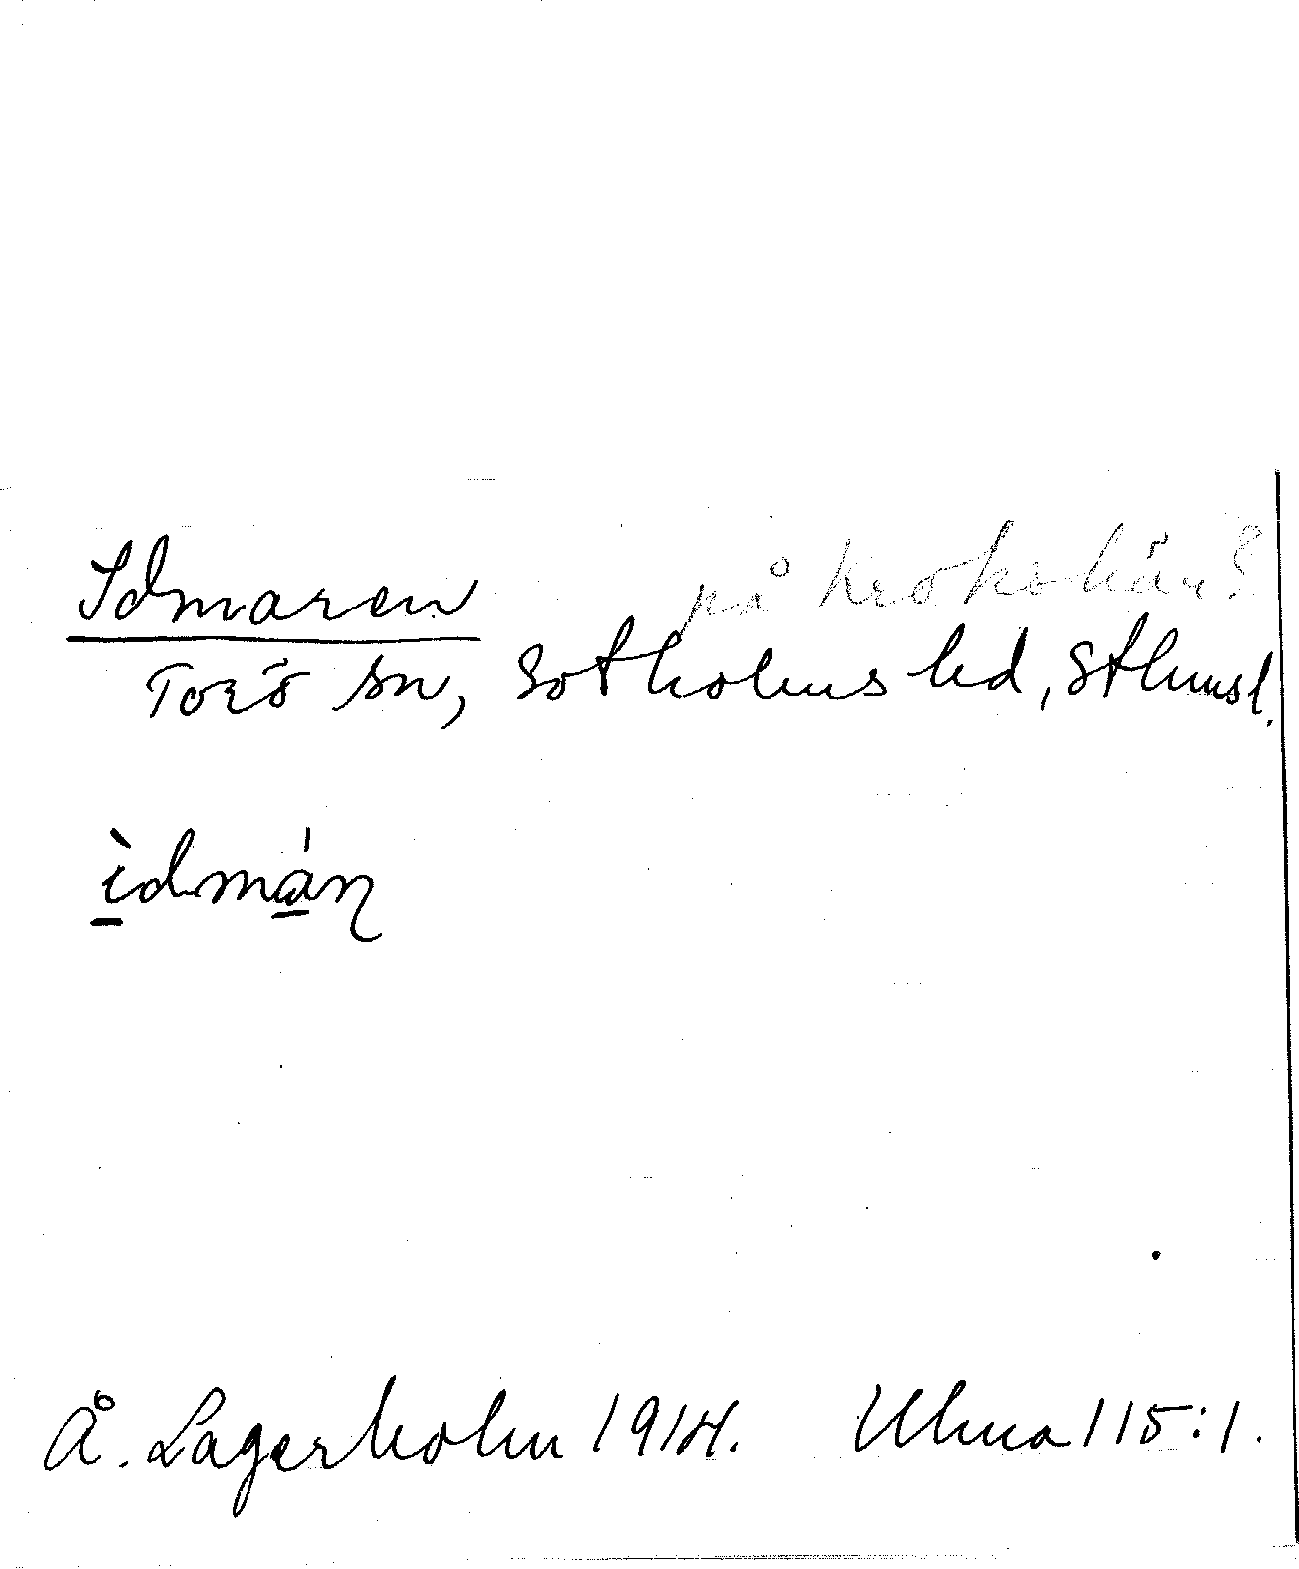 Idmaren på Krokskär?
Torö sn, Sotholms hd, Sthmsl.
ìdmán
Å. Lagerholm 1914. Ulma 115:1.